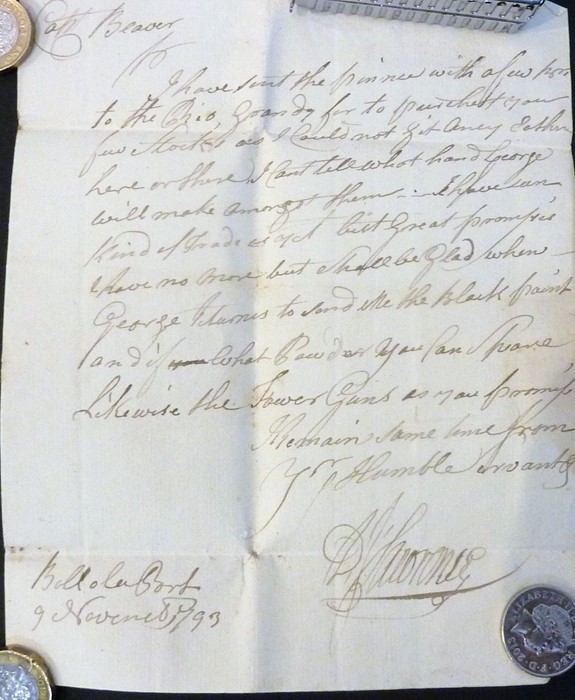 Capt Beaver
Sr
I have sent the pinnce with a few
to the Rio Grandy for to purchest you
few Stocks as I Could not git aney Eather
here or there I Cant tell what hand George
will make amongst them I have
Kind of Trade as yet but Great promises
I have no more but Shall be Glad when
George Returns to send Me the Black paint
and if What Powder You Can Spare
Likewise the Tower Guns as you promis
Remain same time from
Yr Humble Servant
Bollola Port
9 Novembr 1793
ELIZABETH II
REG F D 2013